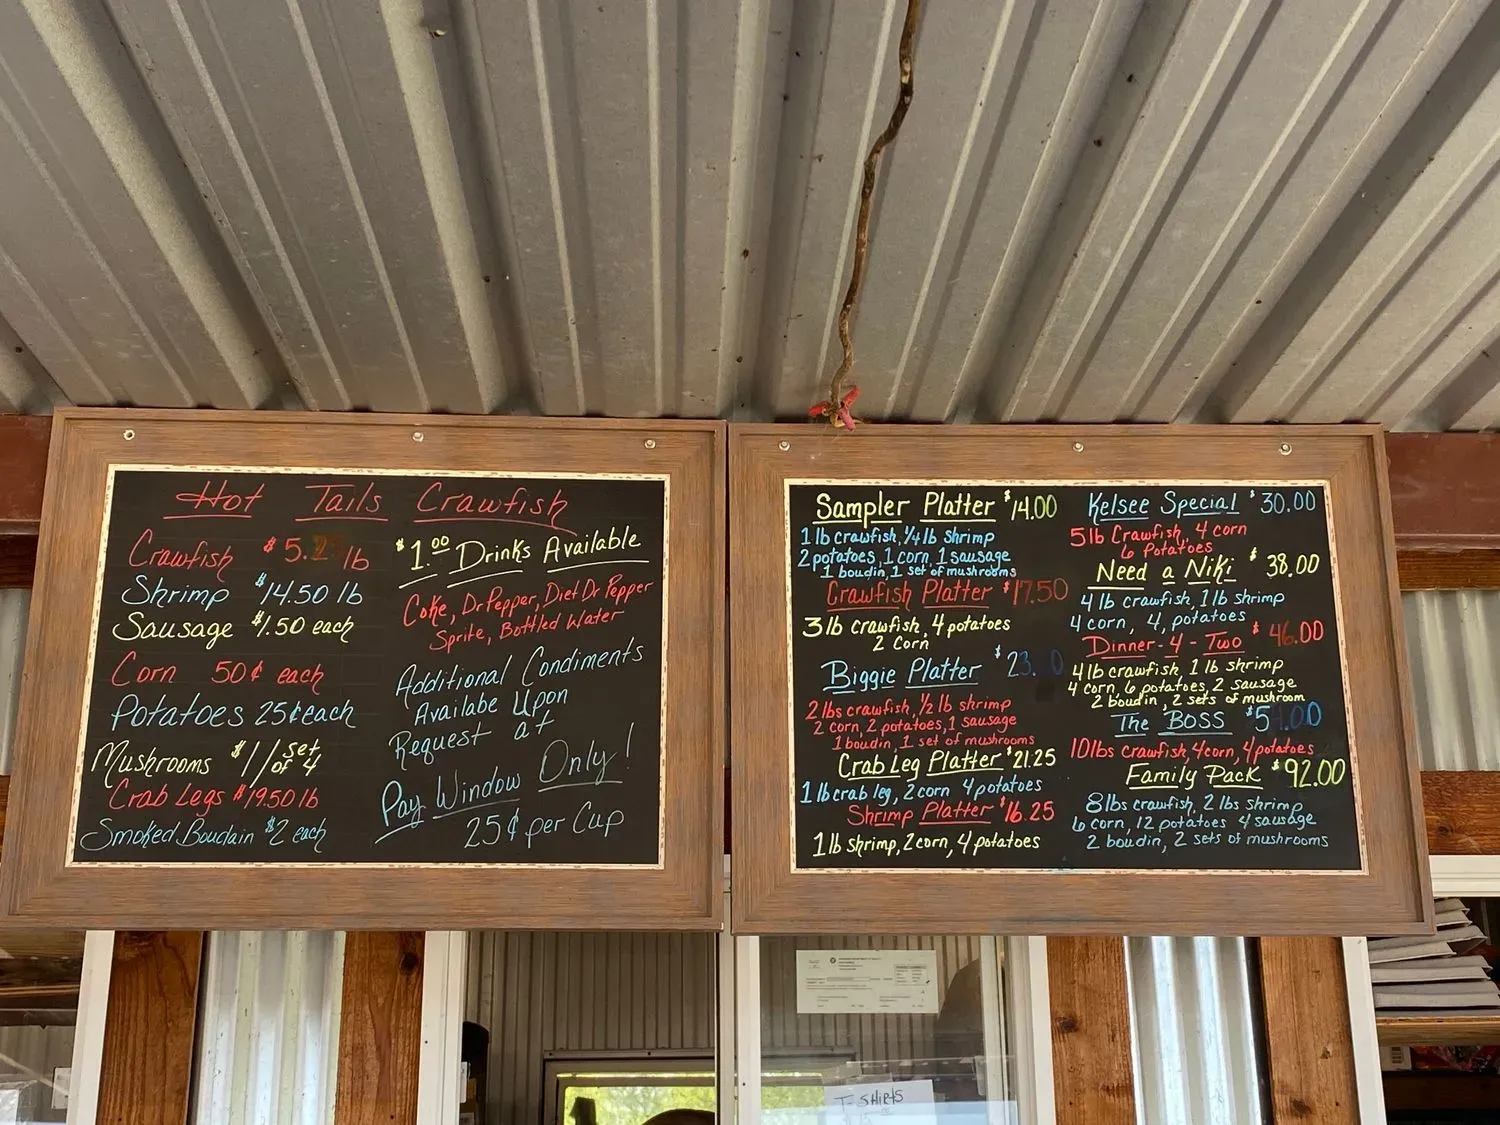 Hot Tails Crawfish
Crawfish $5.25 lb
Shrimp $14.50 lb
Sausage $1.50 each
Corn 50¢ each
Potatoes 25¢ each
Mushrooms $1/set of 4
Crab Legs $19.50 lb
Smoked Boudain $2 each
$1.00 Drinks Available
Coke, Dr Pepper, Diet Dr Pepper
Sprite, Bottled Water
Additional Condiments
Availabe Upon
Request at
Pay Window Only!
25¢ per Cup
Sampler Platter $14.00
1 lb crawfish, 1/4 lb shrimp
2 potatoes, 1 corn, 1 sausage
1 boudin, 1 set of mushrooms
Crawfish Platter $17.50
3 lb crawfish, 4 potatoes
2 Corn
Biggie Platter $23. 0
2 lbs crawfish, 1/2 lb shrimp
2 corn, 2 potatoes, 1 sausage
1 boudin, 1 set of mushrooms
Crab Leg Platter $21.25
1 lb crab leg, 2 corn 4 potatoes
Shrimp Platter $16.25
1 lb shrimp, 2 corn, 4 potatoes
Kelsee Special $30.00
5 lb Crawfish, 4 corn
6 Potatoes
Need a Niki $38.00
4 lb crawfish, 1 lb shrimp
4 corn, 4, potatoes
Dinner-4-Two $46.00
4 lb crawfish, 1 lb shrimp
4 corn, 6 potatoes, 2 sausage
2 boudin, 2 sets of mushroom
The BOSS $54.00
10 lbs crawfish, 4 corn, 4 potatoes
Family Pack $92.00
8 lbs crawfish, 2 lbs shrimp
6 corn, 12 potatoes 4 sausage
2 boudin, 2 sets of mushrooms
T-SHIRTS